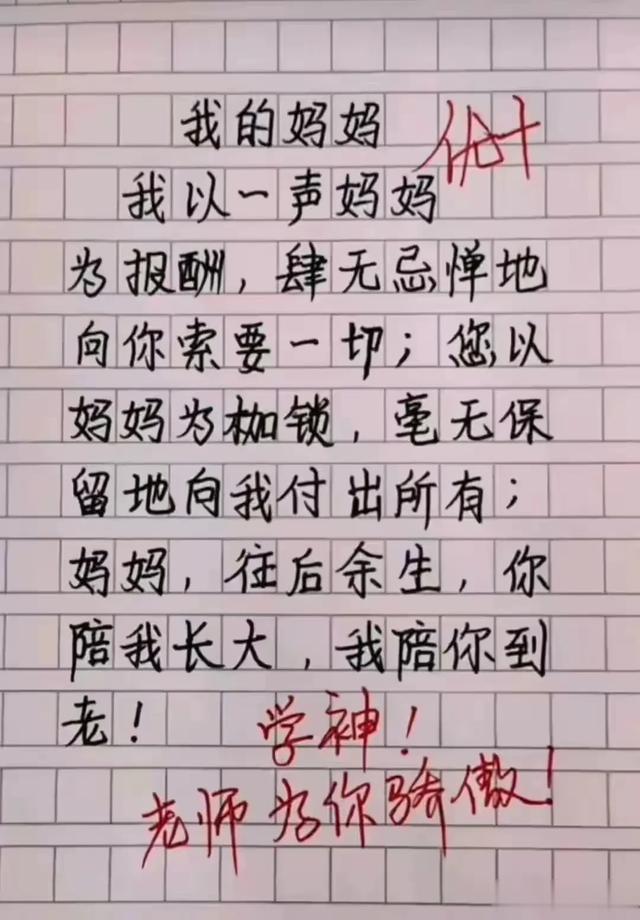 我的妈妈
优+
我以一声妈妈
为报酬，肆无忌惮地
向你索要一切；您以
妈妈为枷锁，毫无保
留地向我付出所有；
妈妈，往后余生，你
陪我长大，我陪你到
老！
学神！
老师为你骄傲！